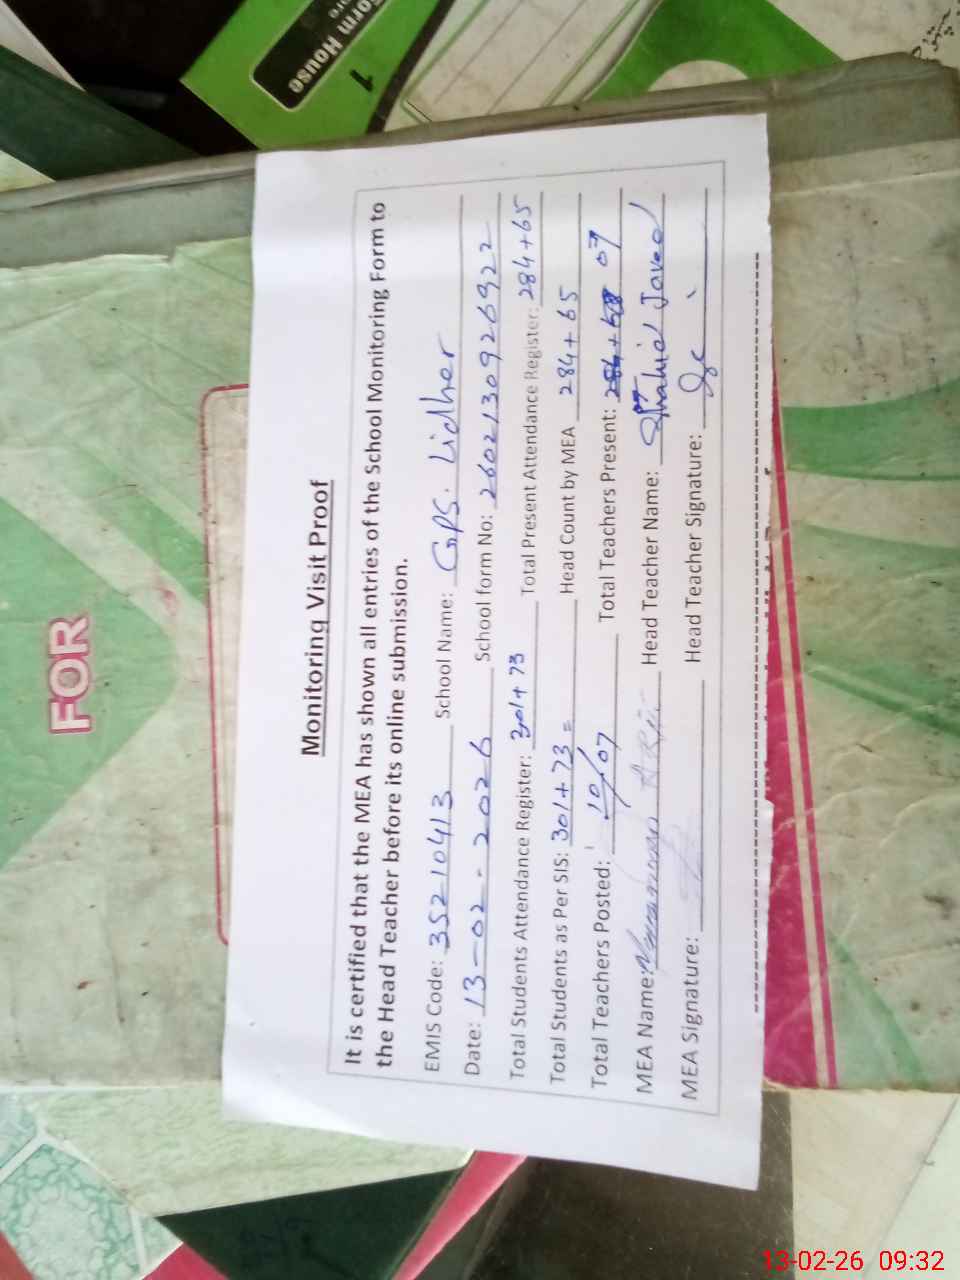 Form House
FOR
Monitoring Visit Proof
It is certified that the MEA has shown all entries of the School Monitoring Form to
the Head Teacher before its online submission.
EMIS Code: 35210413 School Name: GPS. Lidher
Date: 13-02-2026 School form No: 2602130926922
Total Students Attendance Register: 301+73 Total Present Attendance Register: 284+65
Total Students as Per SIS: 301+73 = Head Count by MEA 284+65
Total Teachers Posted: 10/07 Total Teachers Present: 07
MEA Name: Head Teacher Name: Shahid Javed
MEA Signature: Head Teacher Signature:
13-02-26 09:32